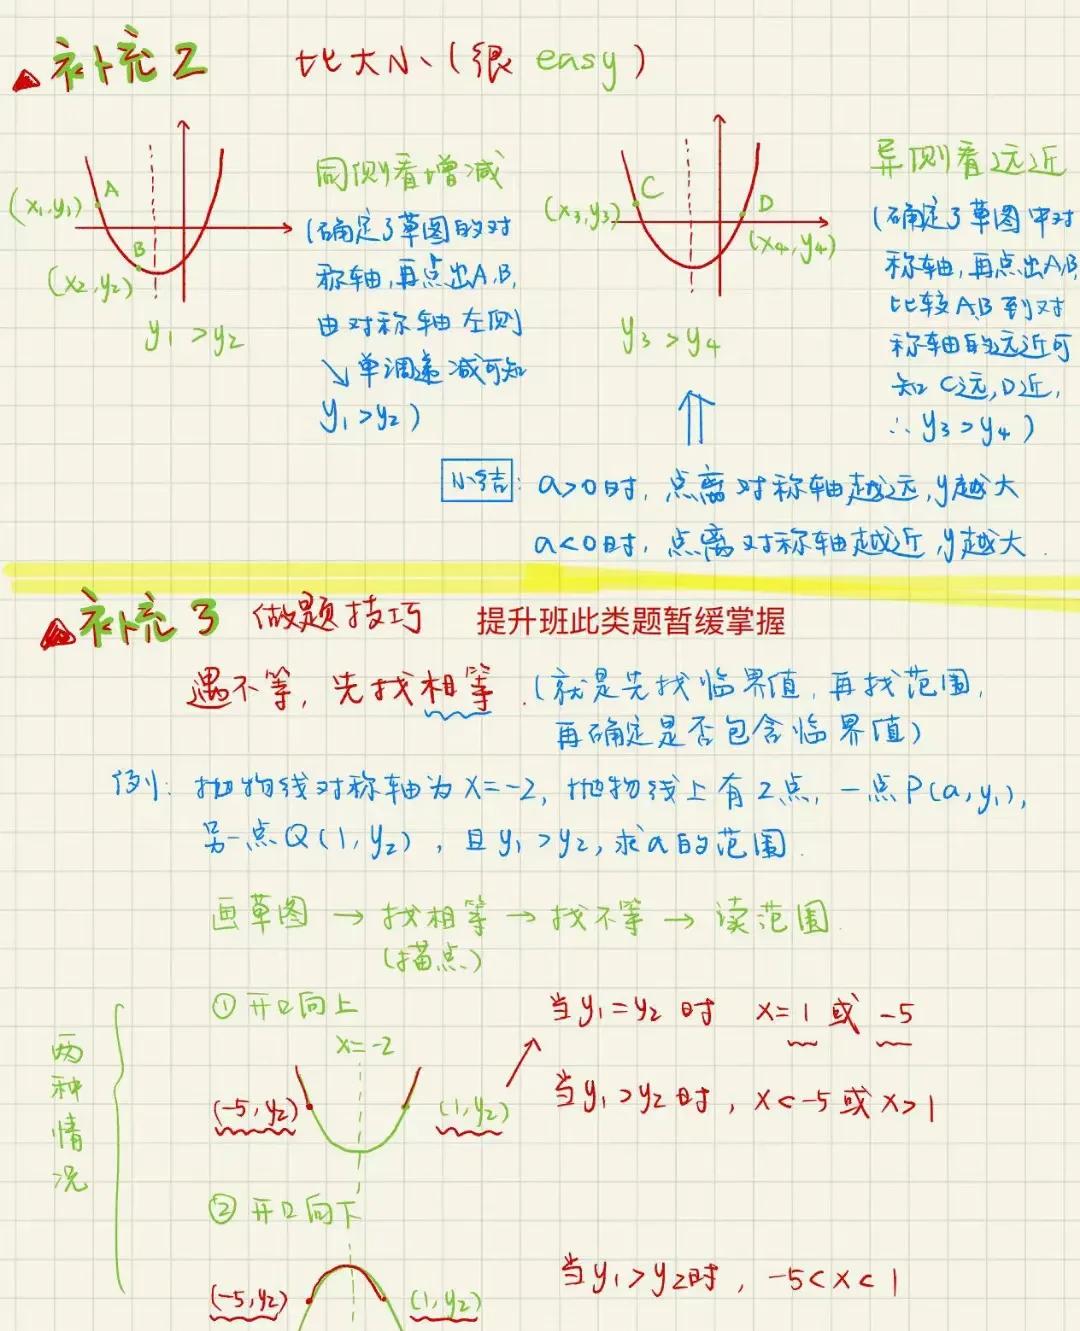 补充2 比大小(很 easy)
A
(x₁,y₁)
B
(x₂,y₂)
y₁>y₂
同侧看增减
(确定了草图的对
称轴,再点出A,B,
由对称轴左侧
↘单调递减可知
y₁>y₂)
C
(x₃,y₃)
D
(x₄,y₄)
y₃>y₄
异侧看远近
(确定了草图中对
称轴,再点出A,B,
比较A,B到对
称轴的远近可
知C远,D近,
∴y₃>y₄)
小结:a>0时,点离对称轴越远,y越大
a<0时,点离对称轴越近,y越大.
补充3 做题技巧 提升班此类题暂缓掌握
遇不等,先找相等.(就是先找临界值,再找范围,
再确定是否包含临界值)
例:抛物线对称轴为x=-2,抛物线上有2点,一点P(a,y₁),
另一点Q(1,y₂),且y₁>y₂,求a的范围.
画草图→找相等→找不等→读范围.
(描点)
两种情况
①开口向上
x=-2
(-5,y₂)
(1,y₂)
当y₁=y₂时 x=1或-5
当y₁>y₂时,x<-5或x>1
②开口向下
(-5,y₂)
(1,y₂)
当y₁>y₂时,-5<x<1